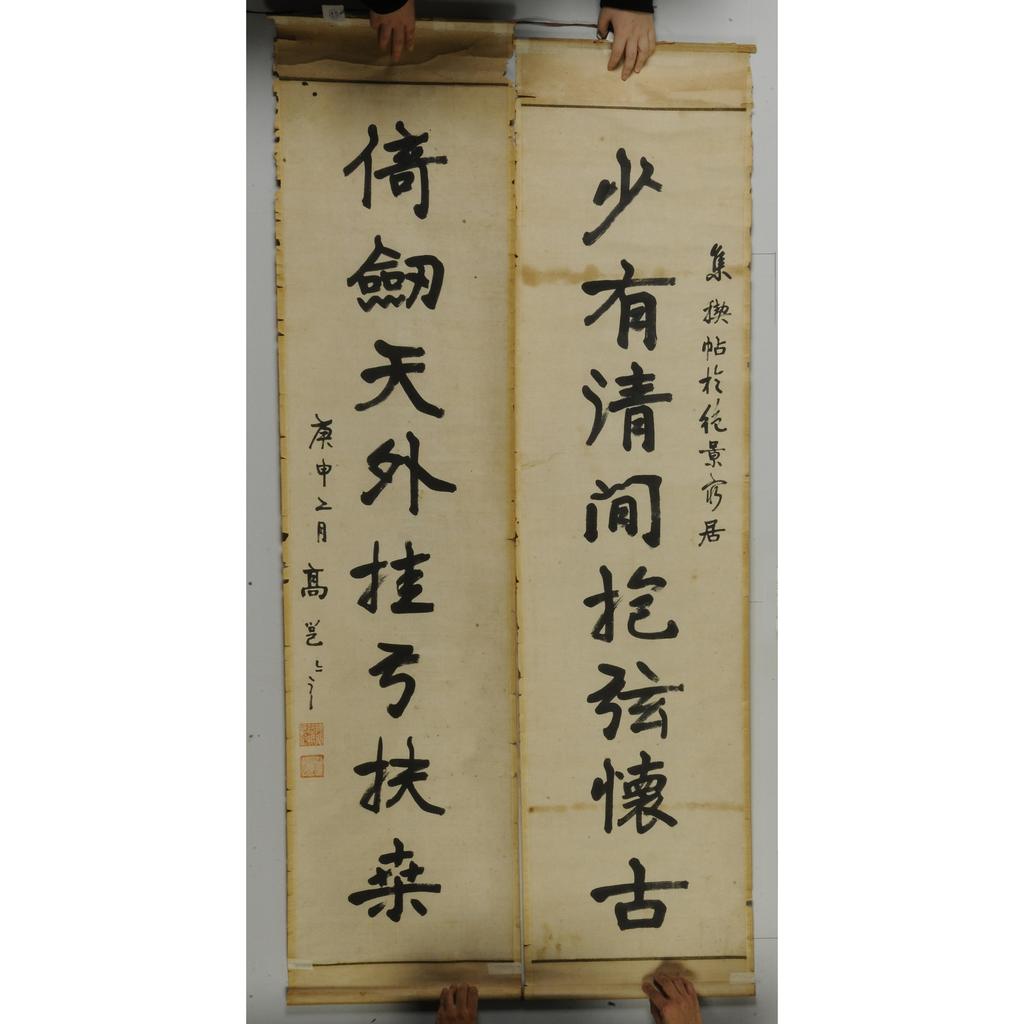 集楔帖於絶景窮居
少有清閒抱弦懷古
倚劒天外挂弓扶桒
庚申二月高邕